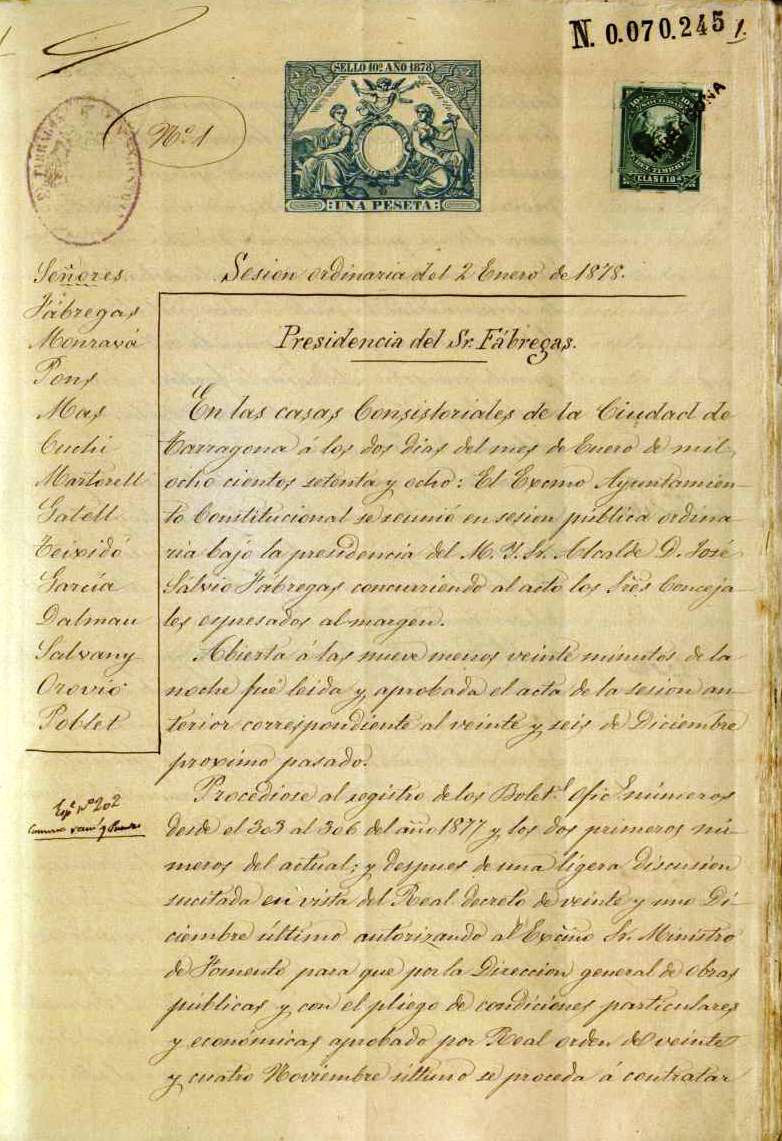 N. 0.070.245
1.
SELLO 10º AÑO 1878
UNA PESETA
CLASE 10ª
Nº 1
Sesion ordinaria del 2 Enero de 1878.
Señores
Fábregas
Monravá
Pons
Mas
Cuchi
Martorell
Gatell
Teixidó
García
Dalmau
Salvany
Orovio
Poblet
Presidencia del Sr. Fábregas.
En las casas Consistoriales de la Ciudad de
Tarragona á los dos dias del mes de Enero de mil
ocho cientos setenta y ocho: El Excmo Ayuntamien-
to Constitucional se reunió en sesion pública ordina-
ria bajo la presidencia del M. Y. Sr. Alcalde D. José
Sálvio Fábregas concurriendo al acto los Sres Conceja-
les espresados al margen.
Abierta á las nueve menos veinte minutos de la
noche fué leida y aprobada el acta de la sesion an-
terior correspondiente al veinte y seis de Diciembre
proximo pasado.
Expe Nº 202
Procediose al registro de los Bolet.s Ofic.s números
desde el 303 al 306 del año 1877 y los dos primeros nú-
meros del actual; y despues de una ligera discusion
sucitada en vista del Real decreto de veinte y uno Di-
ciembre último autorizando al Excmo Sr. Ministro
de Fomento para que por la Direccion general de Obras
públicas y con el pliego de condiciones particulares
y económicas aprobado por Real orden de veinte
y cuatro Noviembre último se proceda á contratar